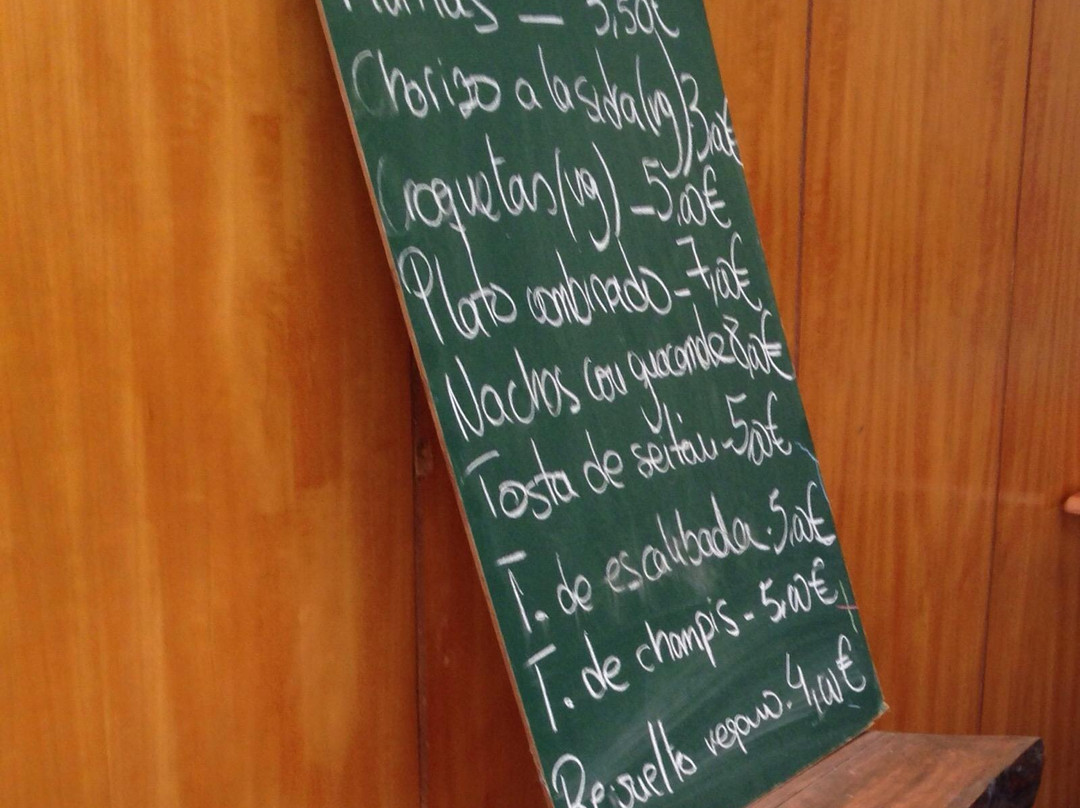 — 5,50€
Chorizo a la sidra (vg) 3,00€
Croquetas (vg) - 5,00€
Plato combinado - 7,00€
Nachos con guacamole 8,00€
Tosta de seitán - 5,00€
T. de escalibada . 5,00€
T. de champis - 5,00€
Revuelto vegano . 4,00€